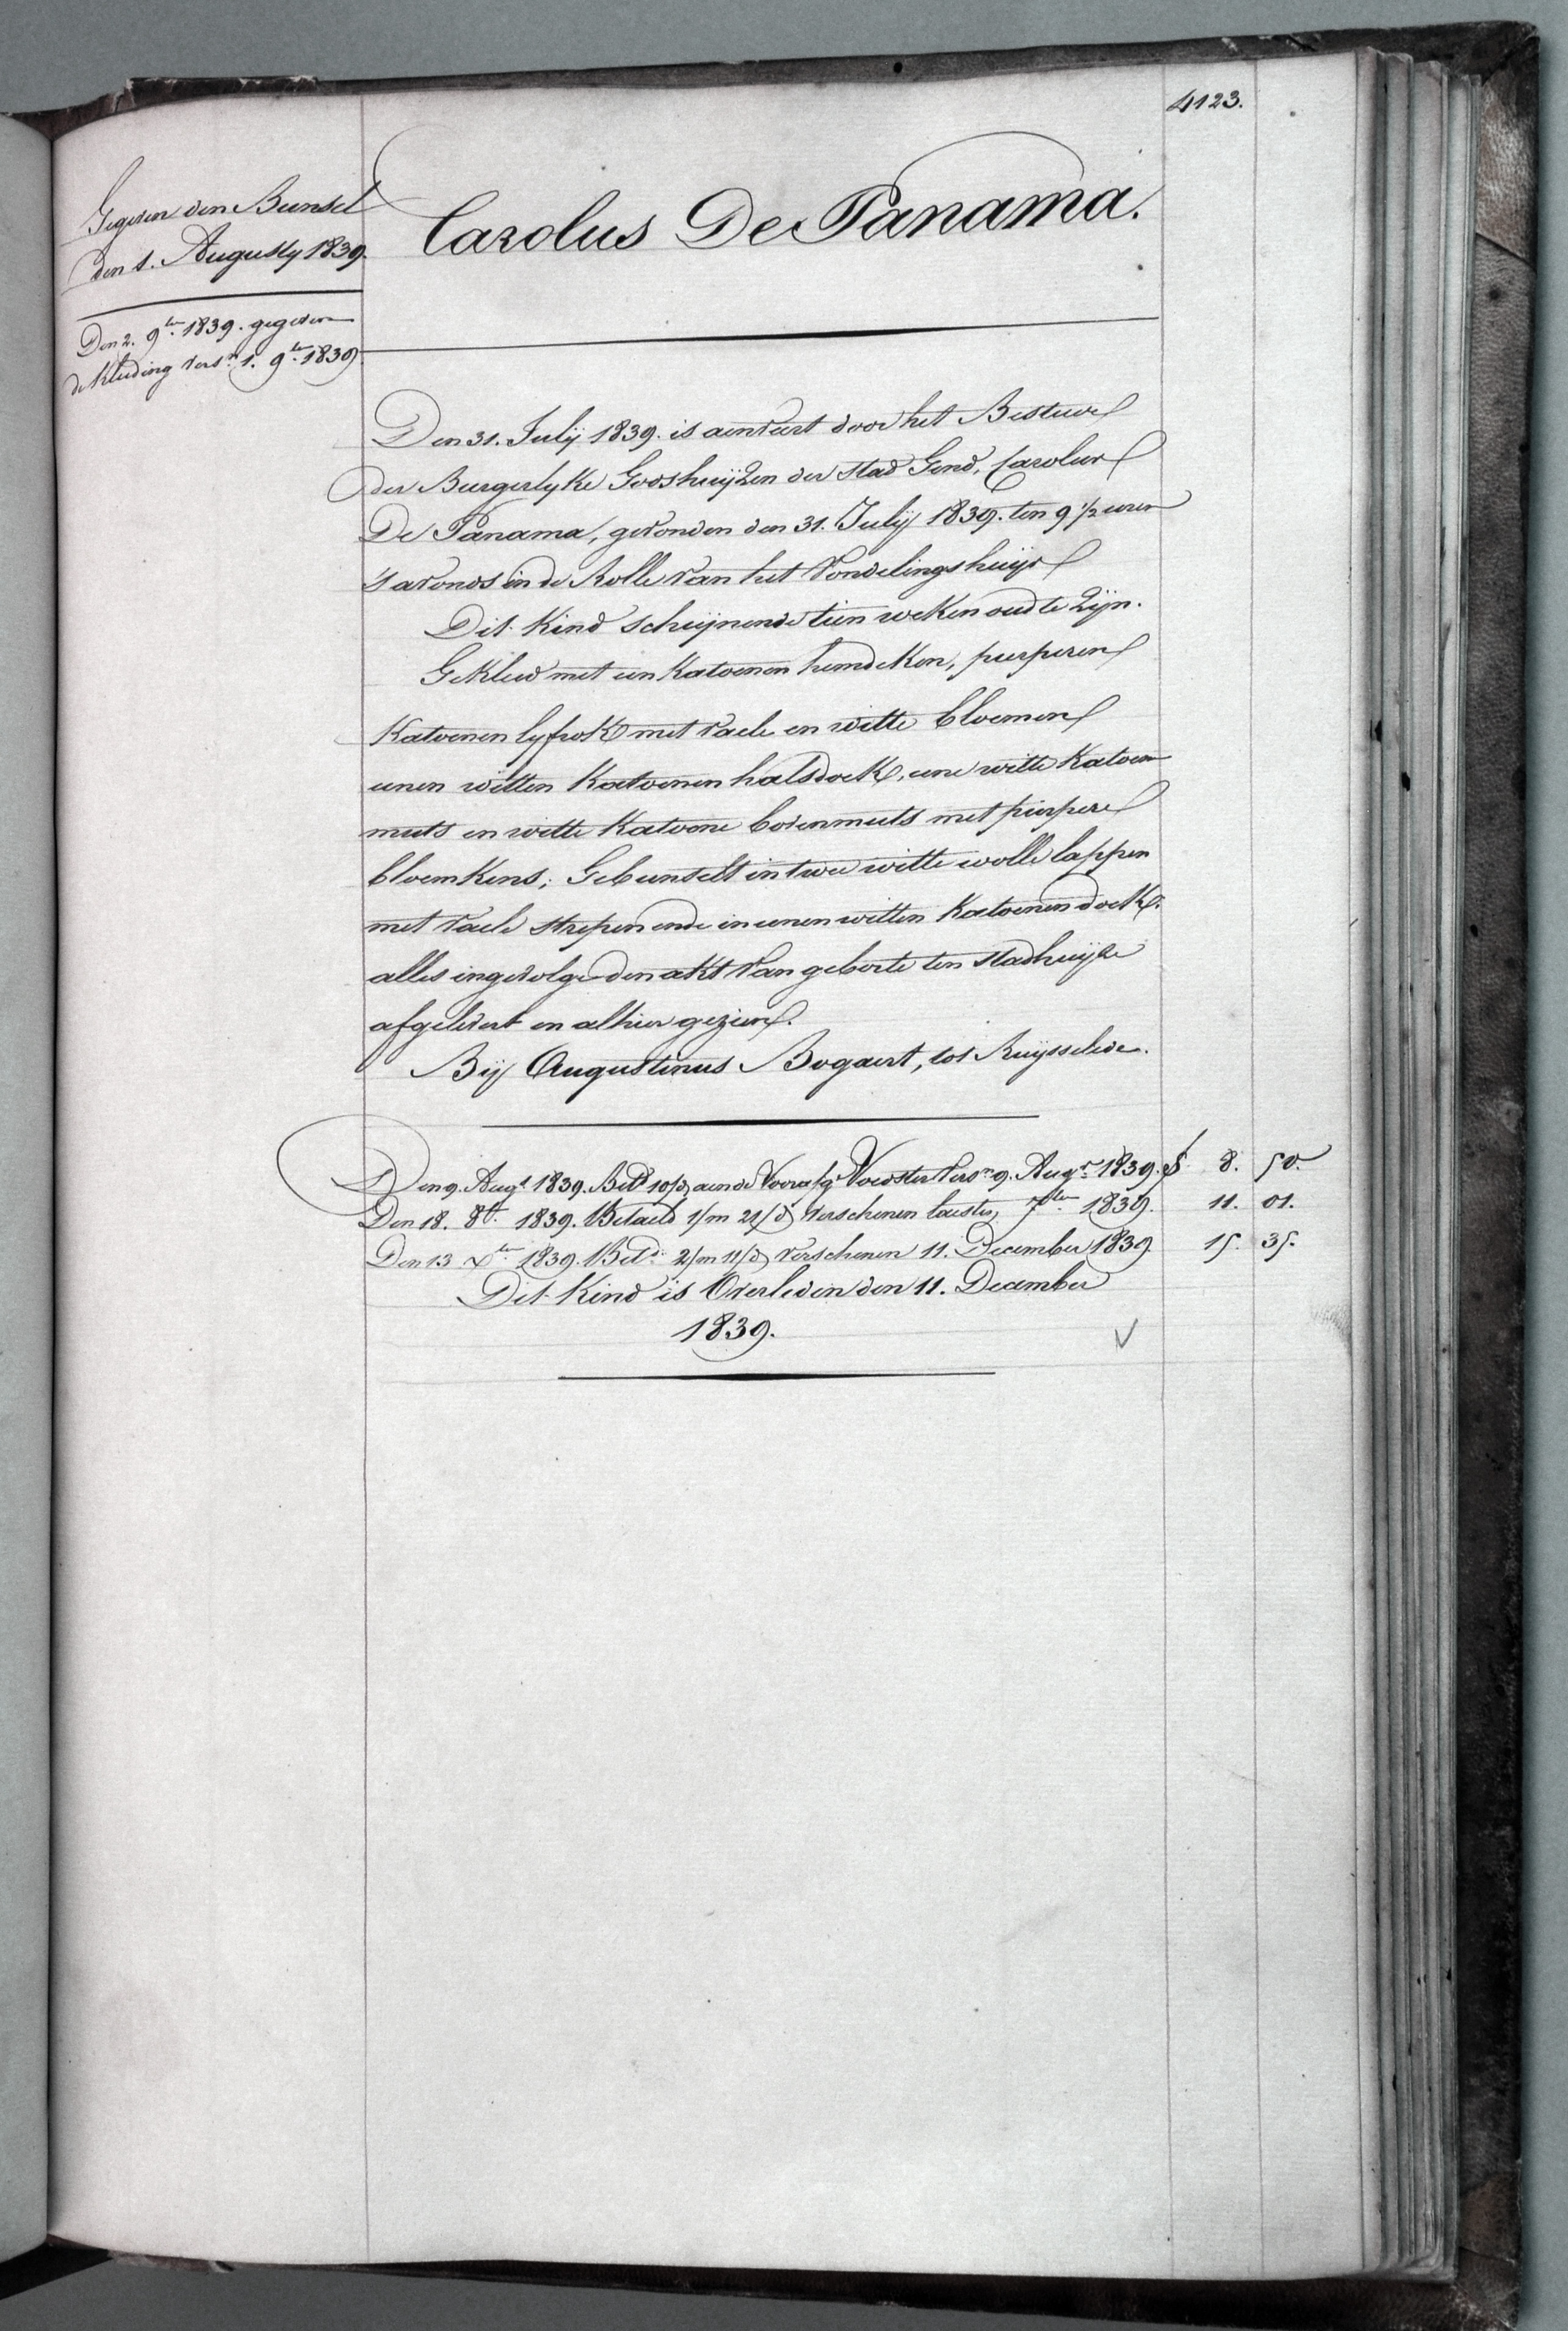 4123.
Gegeven den Bunsel
den 1. Augusty 1839.
Den 2. 9ber 1839. gegeven
de Kleeding versn 1. 9ber 1839
Carolus De Panama.
Den 31. Julij 1839. is aenveert door het Bestuur
der Burgerlyke Godshuijzen der stad Gend, Carolus
De Panama, gevonden den 31. Julij 1839. ten 9 1/2 uren
's avonds in de Rolle van het Vondelingshuijs
Dit Kind schijnende tien weken oud te Zijn.
Gekleed met een Katoenen hemdeken, purperen
Katoenen lyfrok met vaele en witte bloemen
eenen witten Katoenen halsdoek, eene witte Katoen
muts en witte Katoene bovenmuts met purpere
bloemkens; Gebunselt in twee witte wolle lappen
met vaele strepen ende in eenen witten Katoenen doek.
alles ingevolge den akt van geborte ten stadhuijze
afgelevert en alhier gezien.
Bij Augustinus Bogaert, tot Ruysselede.
Den 9. Augt 1839. Betd 10/d aen de Voorafge Voedster versn 9. Augt 1839. f 8. 50.
Den 18. 8br 1839. Betaeld 1/m 21/d verschenen laesten 7ber 1839. 11. 01.
Den 13 xber 1839. Betd 2/m 11/d verschenen 11. December 1839. 15. 35.
Dit Kind is Overleden den 11. December
1839.